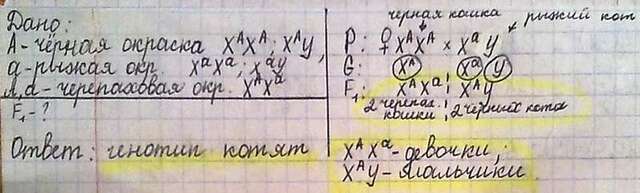 Дано:
А - чёрная окраска X^A X^A; X^A У,
а - рыжая окр. X^a X^a; X^a У
А, а - черепаховая окр. X^A X^a
F₁ - ?
чёрная кошка рыжий кот
P: ♀ X^A X^A × X^a У
G: X^A X^a У
F₁: X^A X^a; X^A У
2 черепах. кошки; 2 чёрных кота
Ответ: генотип котят X^A X^a - девочки;
X^A У - мальчики.